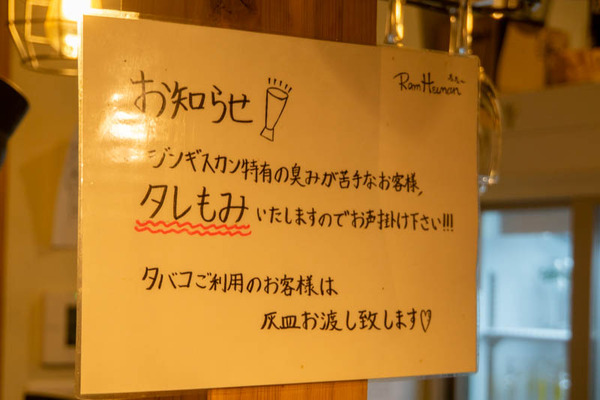 お知らせ
Ram Human
ジンギスカン特有の臭みが苦手なお客様,
タレもみいたしますのでお声掛け下さい!!!
タバコご利用のお客様は
灰皿お渡し致します♡